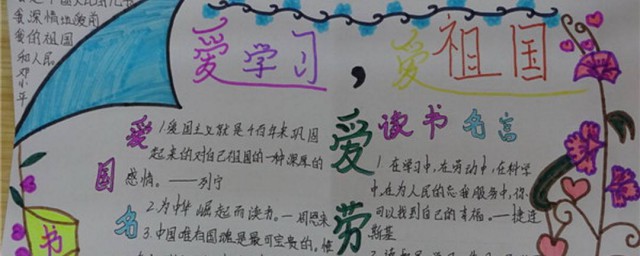 我深情地激用
我的祖国
和人民。
邓小平
爱学习，爱祖国
爱国书
1.爱国主义就是千百年来巩固
起来的对自己祖国的一种深厚的
感情。——列宁
2.为中华崛起而读书。—周恩来
3.中国唯有国魂是最可宝贵的，惟
爱劳
读书名言
1.在学习中，在劳动中，在科学
中，在为人民的忘我服务中，你
可以找到自己的幸福。——捷连
斯基
书